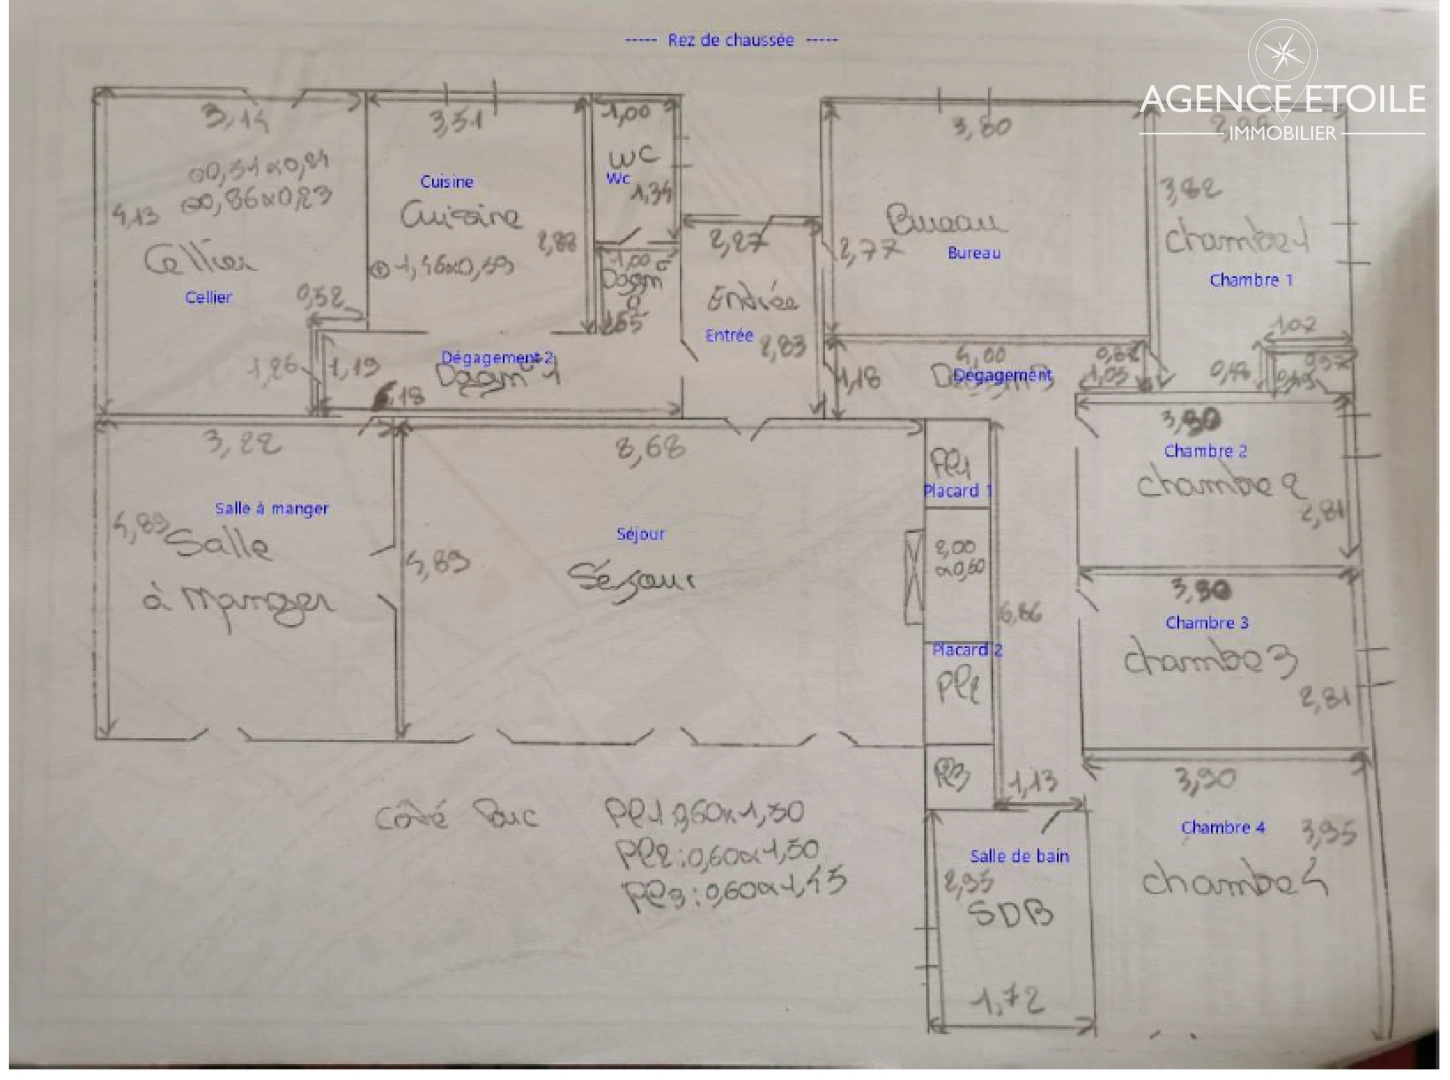 ----- Rez de chaussée -----
AGENCE ETOILE
IMMOBILIER
3,14
3,51
1,00
3,80
⊖0,51x0,24
⊖0,86x0,23
4,13
Cellier
Cellier
Cuisine
Cuisine
⊕1,46x0,59
2,88
WC
Wc
1,34
1,00
Dagm
2,27
Entrée
Entrée
2,83
2,77
Bureau
Bureau
3,82
Chambre 1
Chambre 1
1,07
0,52
1,26
1,19
Dégagement 2
Dagm 1
1,18
4,00
Dégagement
1,05
0,48
3,22
8,68
Salle à manger
Salle
à manger
4,89
4,89
Séjour
Séjour
Pl1
Placard 1
2,00
x0,60
Placard 2
Pl2
Pl3
6,86
1,13
3,90
Chambre 2
chambre 2
2,81
3,90
Chambre 3
chambre 3
2,81
3,90
Chambre 4
chambre 4
3,95
Côté Parc
Pl1 0,60x1,50
Pl2 : 0,60x1,50
Pl3 : 0,60x1,45
Salle de bain
2,95
SDB
1,72